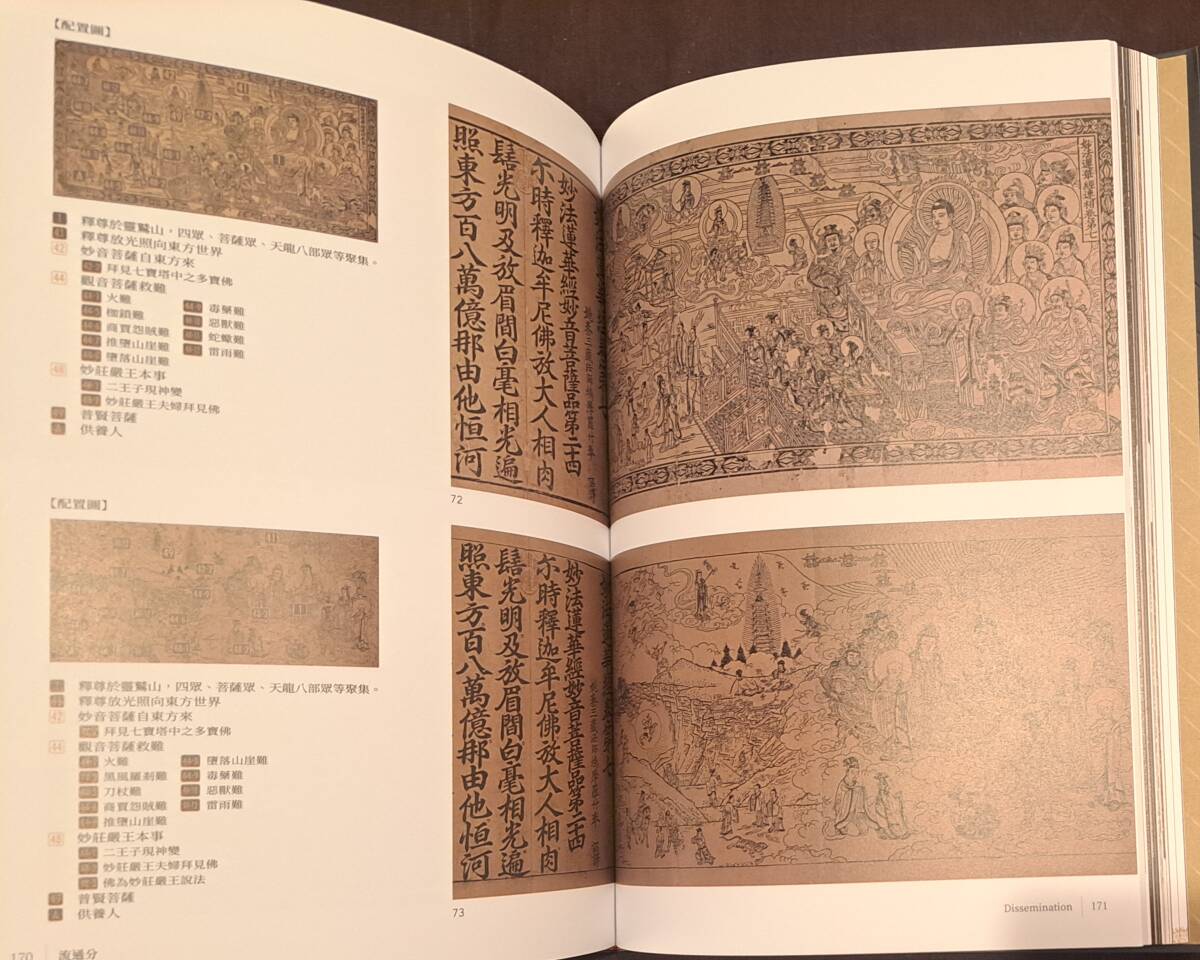 【配置圖】
1 釋尊於靈鷲山，四眾、菩薩眾、天龍八部眾等聚集。
釋尊放光照向東方世界
42 妙音菩薩自東方來
拜見七寶塔中之多寶佛
44 觀音菩薩救難
火難
枷鎖難
商賈怨賊難
推墮山崖難
墮落山崖難
毒藥難
惡獸難
蛇蠍難
雷雨難
48 妙莊嚴王本事
二王子現神變
妙莊嚴王夫婦拜見佛
49 普賢菩薩
供養人
【配置圖】
釋尊於靈鷲山，四眾、菩薩眾、天龍八部眾等聚集。
釋尊放光照向東方世界
42 妙音菩薩自東方來
拜見七寶塔中之多寶佛
44 觀音菩薩救難
火難
黑風羅剎難
刀杖難
商賈怨賊難
推墮山崖難
墮落山崖難
毒藥難
惡獸難
雷雨難
48 妙莊嚴王本事
二王子現神變
妙莊嚴王夫婦拜見佛
佛為妙莊嚴王說法
普賢菩薩
供養人
170 流通分
妙法蓮華經妙音菩薩品第二十四
尒時釋迦牟尼佛放大人相肉
髻光明及放眉間白毫相光遍
照東方百八萬億那由他恒河
72
妙法蓮華經妙音菩薩品第二十四
尒時釋迦牟尼佛放大人相肉
髻光明及放眉間白毫相光遍
照東方百八萬億那由他恒河
73
Dissemination 171